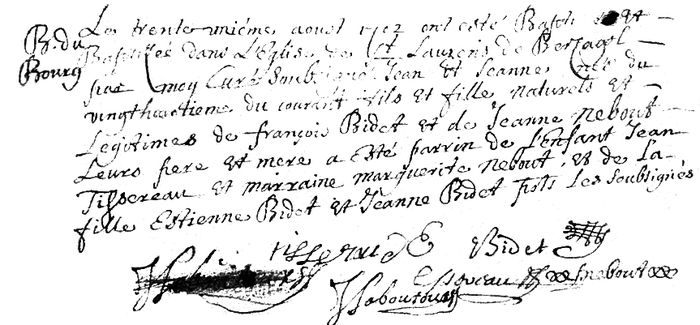 B. du
Bourg
Le trente uniéme aoust 1702 ont esté Bapti et
Baptisés dans L'Eglise de St Laurens de
par moy Curé Soubsigné Jean et Jeanne nés du
vingthuictieme du courant fils et fille naturels et
Légitimes de françois Bidet et de Jeanne nebout
Leurs pere et mere a esté parrin de L'enfant Jean
Tissereau et marraine marguerite nebout, et de La
fille Estienne Bidet et Jeanne Bidet Les soubsignés
tissereau Bidet
nebout